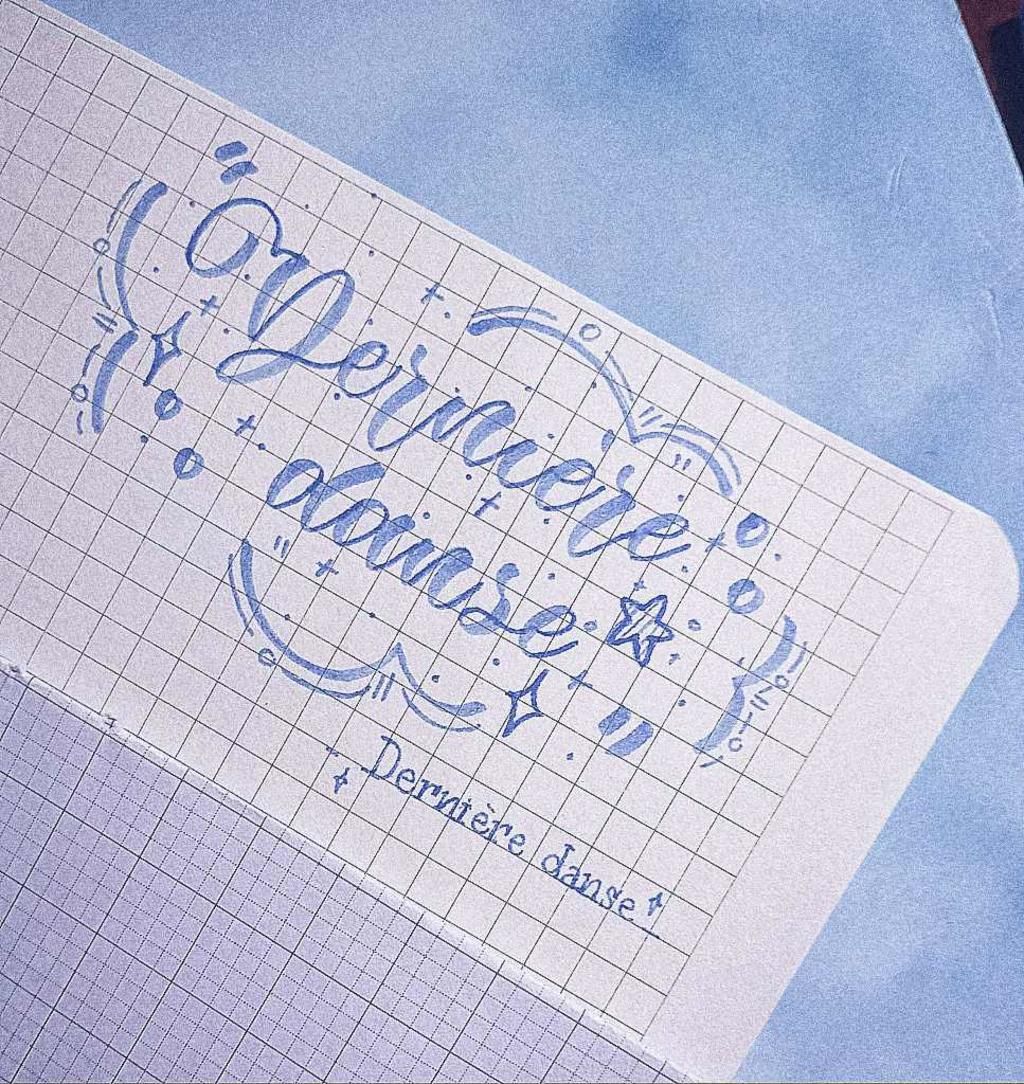 "Dernière
danse"
Dernière danse